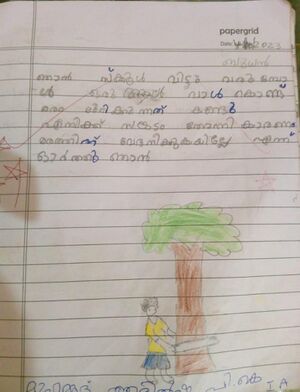 papergrid
Date: 4/11/2023
ബുധൻ
ഞാൻ സ്കൂൾ വിട്ടു വരുമ്പോ
ൾ ഒരു ആൾ വാൾ കൊണ്ട്
മരം മുറിക്കുന്നത് കണ്ടു
എനിക്ക് സങ്കടം തോന്നി കാരണം
അതിന് വേദനിക്കുകയില്ലേ എന്ന്
ഓർത്തു ഞാൻ
പി.കെ I A